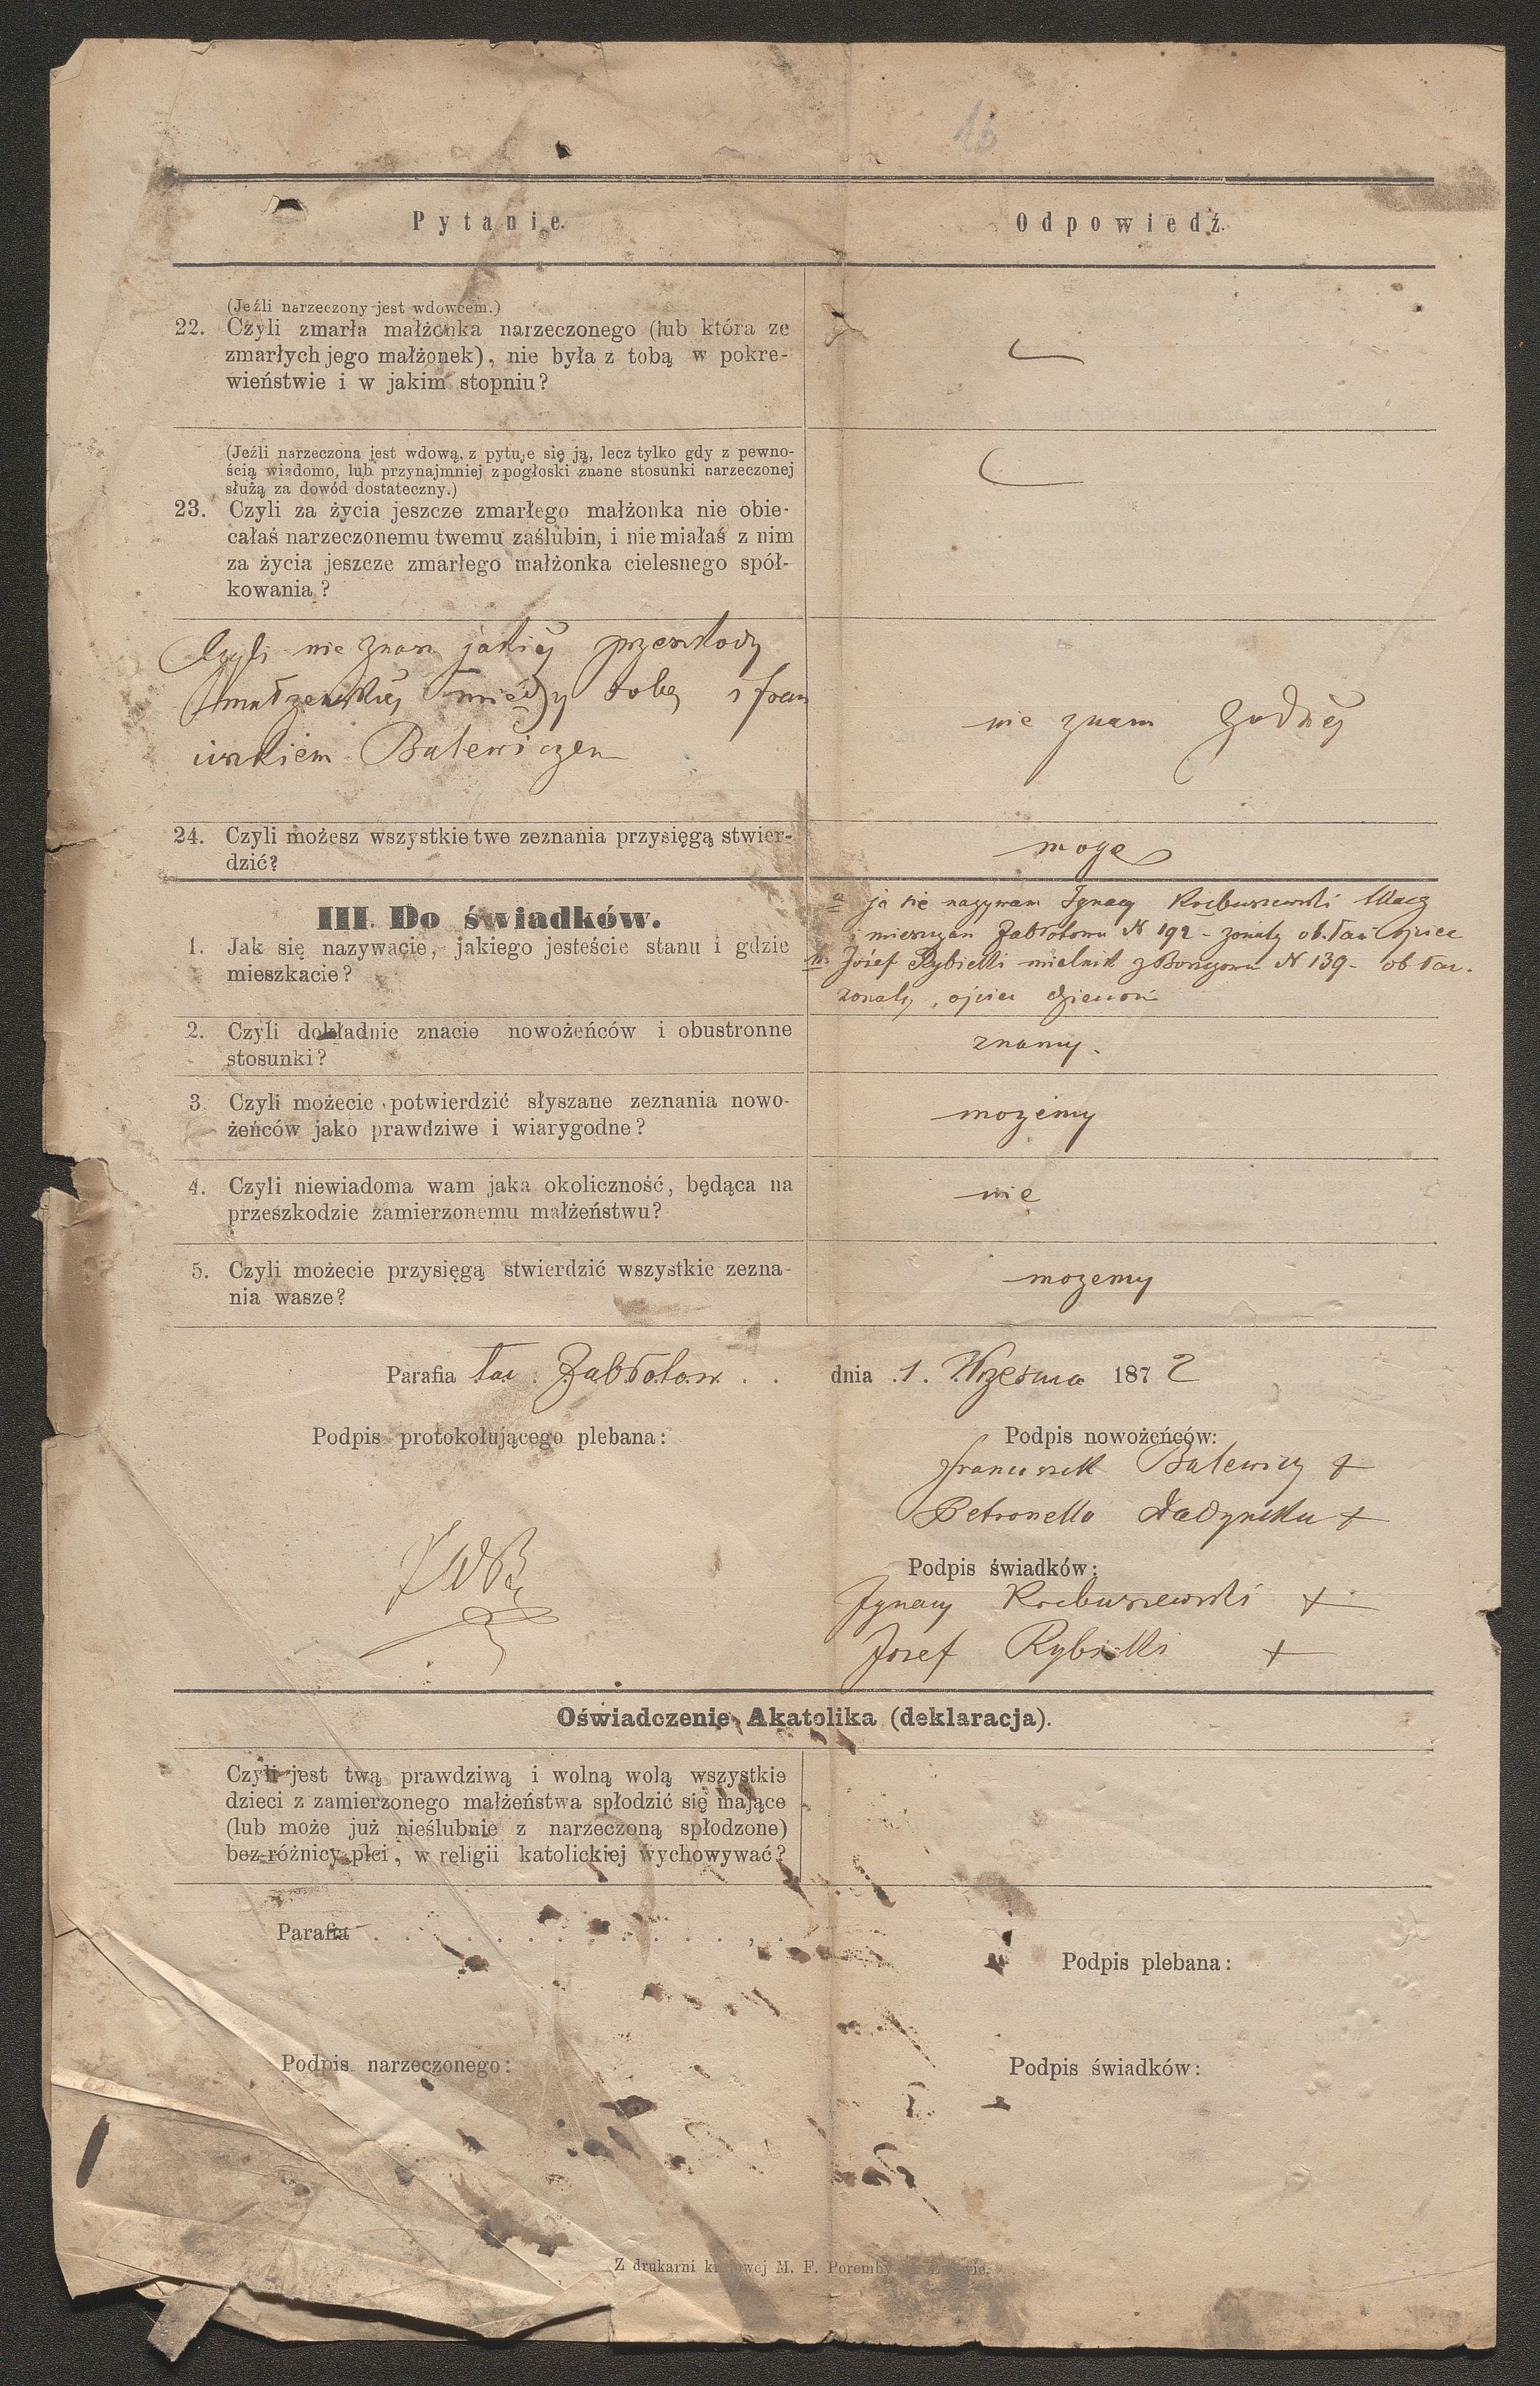 16
Pytanie.
Odpowiedź.
(Jeźli narzeczony jest wdowcem.)
22. Czyli zmarła małżonka narzeczonego (lub która ze
zmarłych jego małżonek), nie była z tobą w pokre-
wieństwie i w jakim stopniu?
(Jeźli narzeczona jest wdową, zapytuje się ją, lecz tylko gdy z pewno-
ścią wiadomo, lub przynajmniej z pogłoski znane stosunki narzeczonej
służą za dowód dostateczny.)
23. Czyli za życia jeszcze zmarłego małżonka nie obie-
całaś narzeczonemu twemu zaślubin, i nie miałaś z nim
za życia jeszcze zmarłego małżonka cielesnego spół-
kowania?
Czyli nie znasz jakiéj przeszkody
małżeńskiéj między tobą i fran
ciszkiem Balewiczem
nie znam żadnéj
24. Czyli możesz wszystkie twe zeznania przysięgą stwier-
dzić?
mogę
III. Do świadków.
1. Jak się nazywacie, jakiego jesteście stanu i gdzie
mieszkacie?
a ja się nazywam Ignacy
mieszczan Zabłotowa N 192 - żonaty ob. łac ojciec
b. Józef Rybicki mielnik z N 139 - ob łac.
żonaty, ojciec
2. Czyli dokładnie znacie nowożeńców i obustronne
stosunki?
znamy.
3. Czyli możecie potwierdzić słyszane zeznania nowo-
żeńców jako prawdziwe i wiarygodne?
możemy
4. Czyli niewiadoma wam jaka okoliczność, będąca na
przeszkodzie zamierzonemu małżeństwu?
nie
5. Czyli możecie przysięgą stwierdzić wszystkie zezna-
nia wasze?
możemy
Parafia łac. Zabłotow. . dnia .1. Września 1872
Podpis protokołującego plebana:
Podpis nowożeńców:
Franciszek Balewicz +
Petronella Ładyńska +
Podpis świadków:
Ignacy +
Jozef Rybicki +
Oświadczenie Akatolika (deklaracja).
Czyli jest twą prawdziwą i wolną wolą wszystkie
dzieci z zamierzonego małżeństwa spłodzić się mające
(lub może już nieślubnie z narzeczoną spłodzone)
bez różnicy płci, w religii katolickiej wychowywać?
Parafia
Podpis plebana:
Podpis narzeczonego:
Podpis świadków:
Z drukarni krajowej M. F. Poremby